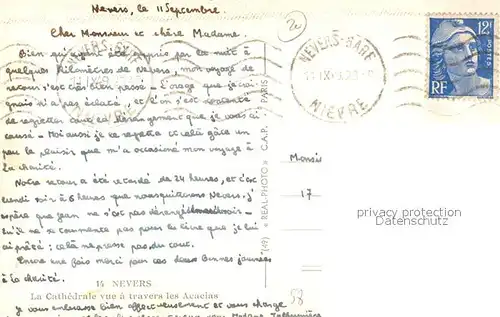 Nevers, le 11 Septembre.
2e
Cher Monsieur et chère Madame.
Bien qu'ayant été surpris par la nuit à
quelques kilomètres de Nevers, mon voyage de
retour s'est très bien passé - L'orage que je crai
gnais n'a pas éclaté, et l'on s'est contenté
de regretter tout le dérangement que je vous ai
causé - Moi aussi je le regrette et cela gâte un
peu le plaisir que m'a occasionné mon voyage à
La Charité.
Notre retour a été retardé de 24 heures, et c'est
lundi soir à 6 heures que nous quitterons Nevers. J'
espère que Jean ne s'est pas dérangé
lui je ne pas pour le livre que je lui
ai prêté : cela ne presse pas du tout.
Encore une fois merci pour ces deux bonnes journées
à la Charité.
14 NEVERS
La Cathédrale vue à travers les Acacias
Je vous embrasse bien affectueusement et vous charge
Madame
NEVERS-GARE
NIÈVRE
NEVERS-GARE
12F
POSTES
RF
(49) « REAL-PHOTO » C.A.P. PARIS
Monsie
17
58
privacy protection
DelCampe.net